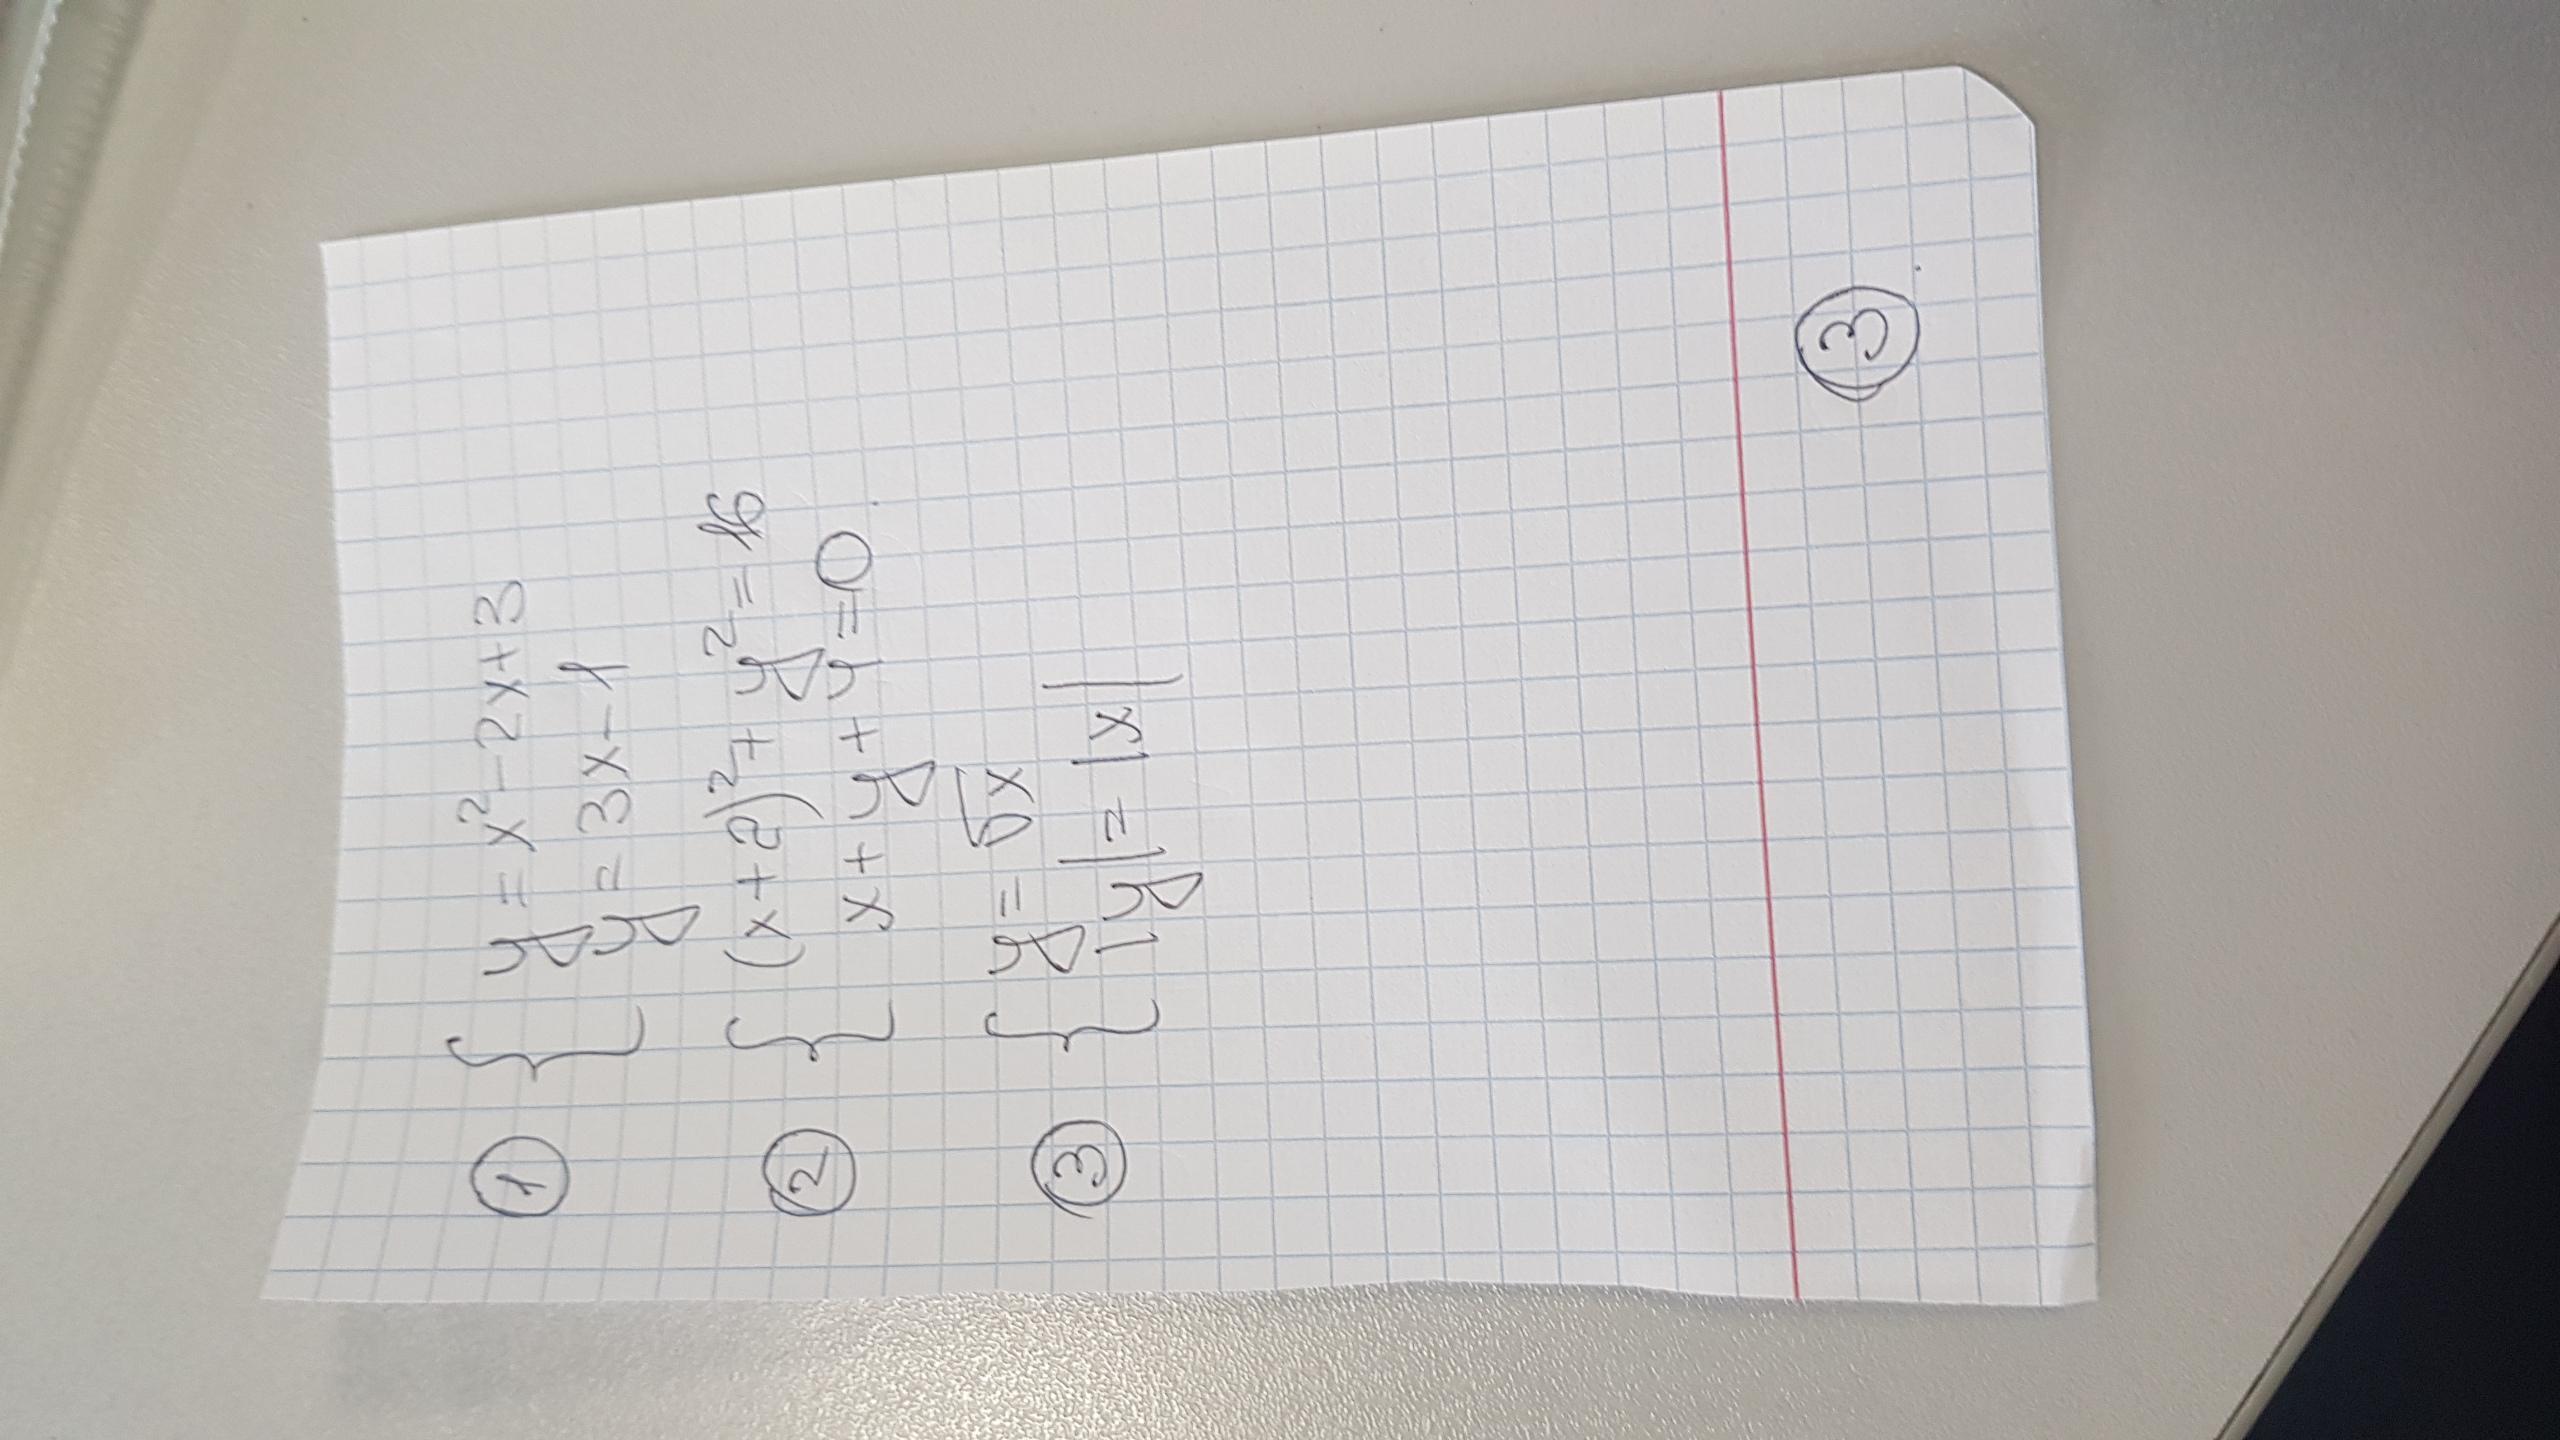 ① { y = x² - 2x + 3
y = 3x - 1
② { (x+2)² + y² = 16
x + y + 4 = 0
③ { y = √x
|y| = |x|
③